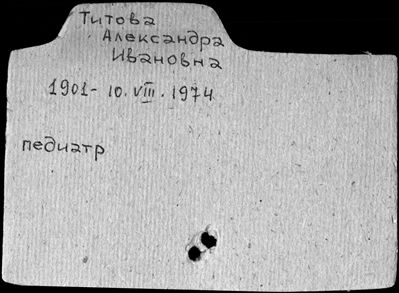 Титова
Александра
Ивановна
1901- 10.VIII.1974
педиатр